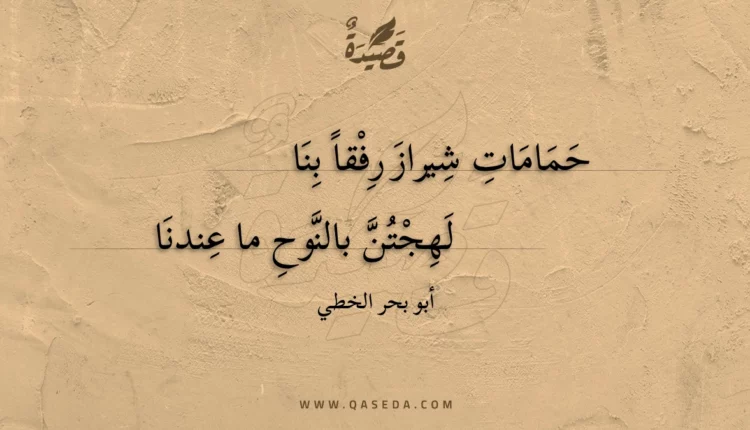 قَصِيْدَةٌ
حَمَامَاتِ شِيرازَ رِفْقاً بِنَا
لَهِجْتُنَّ بالنَّوحِ ما عِندنَا
أبو بحر الخطي
WWW.QASEDA.COM